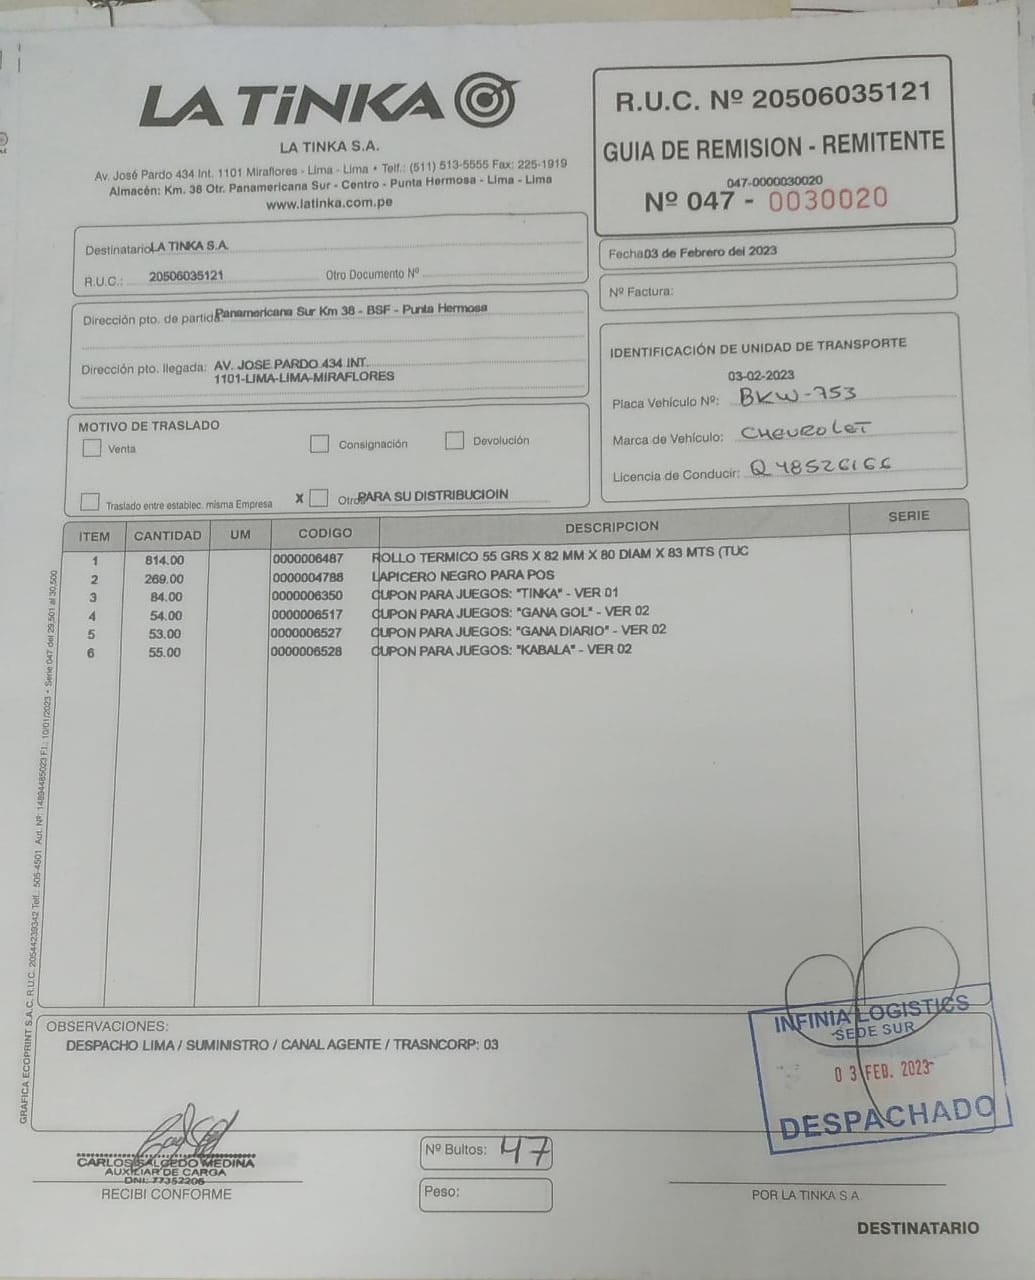 LA TiNKA
LA TINKA S.A.
Av. José Pardo 434 Int. 1101 Miraflores - Lima - Lima • Telf.: (511) 513-5555 Fax: 225-1919
Almacén: Km. 38 Otr. Panamericana Sur - Centro - Punta Hermosa - Lima - Lima
www.latinka.com.pe
R.U.C. Nº 20506035121
GUIA DE REMISION - REMITENTE
047-0000030020
Nº 047 - 0030020
Destinatario LA TINKA S.A.
R.U.C.: 20506035121 Otro Documento Nº
Fecha 03 de Febrero del 2023
Nº Factura:
Dirección pto. de partida Panamericana Sur Km 38 - BSF - Punta Hermosa
Dirección pto. llegada: AV. JOSE PARDO 434 INT.
1101-LIMA-LIMA-MIRAFLORES
IDENTIFICACIÓN DE UNIDAD DE TRANSPORTE
03-02-2023
Placa Vehículo Nº: BKW-753
Marca de Vehículo: CHEVROLET
Licencia de Conducir: Q48526166
MOTIVO DE TRASLADO
Venta Consignación Devolución
Traslado entre establec. misma Empresa X Otros PARA SU DISTRIBUCIOIN
ITEM CANTIDAD UM CODIGO DESCRIPCION SERIE
1 814.00 0000006487 ROLLO TERMICO 55 GRS X 82 MM X 80 DIAM X 83 MTS (TUC
2 269.00 0000004788 LAPICERO NEGRO PARA POS
3 84.00 0000006350 CUPON PARA JUEGOS: "TINKA" - VER 01
4 54.00 0000006517 CUPON PARA JUEGOS: "GANA GOL" - VER 02
5 53.00 0000006527 CUPON PARA JUEGOS: "GANA DIARIO" - VER 02
6 55.00 0000006528 CUPON PARA JUEGOS: "KABALA" - VER 02
GRAFICA ECOPRINT S.A.C. R.U.C. 20544239342 Telf.: 505-4501 Aut. Nº: 14894485023 F.I.: 10/01/2023 • Serie 047 del 29,501 al 30,500
OBSERVACIONES:
DESPACHO LIMA / SUMINISTRO / CANAL AGENTE / TRASNCORP: 03
INFINIA LOGISTICS
SEDE SUR
03 FEB. 2023
DESPACHADO
CARLOS SALCEDO MEDINA
AUXILIAR DE CARGA
DNI: 77352206
RECIBI CONFORME
Nº Bultos: 47
Peso:
POR LA TINKA S.A.
DESTINATARIO